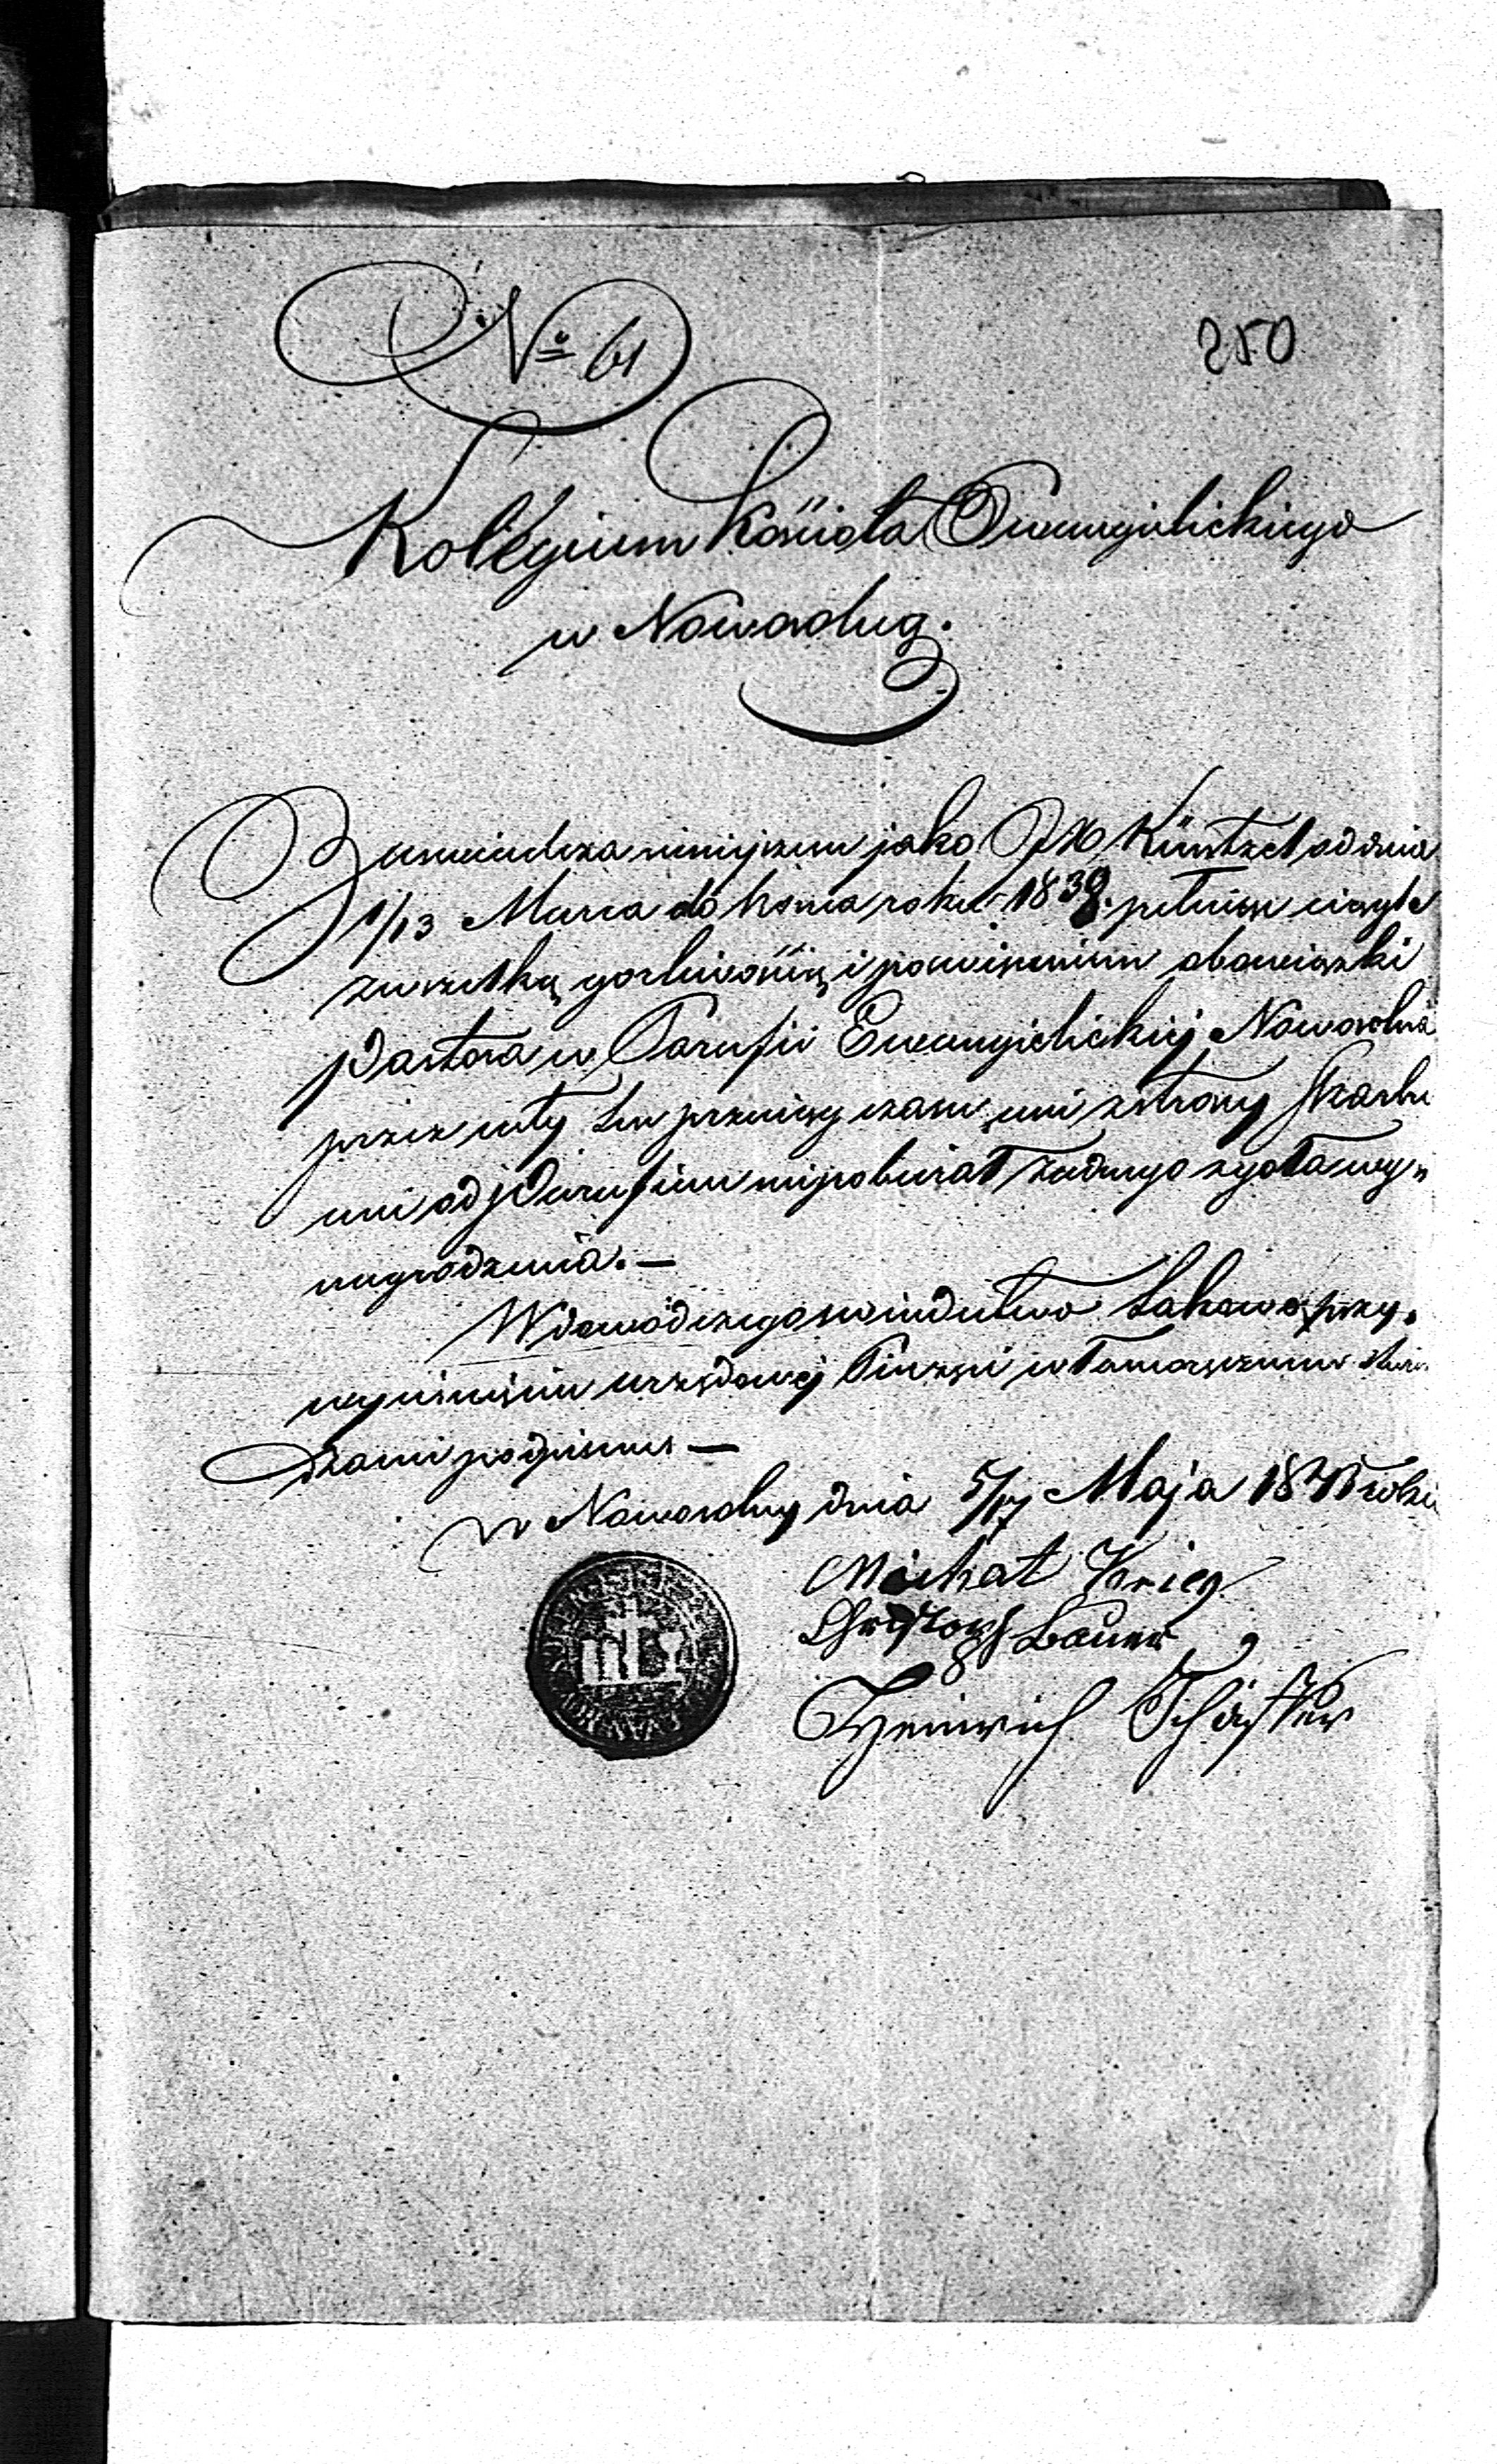 No 61
250
Kolegium Kościoła Ewangielickiego
w Nowosolny.
Zaświadcza niniejszem jako JX Küntzel od dnia
1/13 Marca do końca roku 1839. pełniąc ciągle
zwszelką gorliwością i poświęceniem obowiązki
Pastora w Parafii Ewangielickiej Nowosolna
przez cały ten przeciąg czasu, ani zstrony Skarbu
ani od Parafian niepobierał żadnego zgoła wy„
nagrodzenia. —
W dowód czego świadectwo takowe przy
wyciśnieniu urzędowej Pieczęci w
podpisuje —
w Nowosolny dnia 5/17 Maja 184 roku
Michał Krieg
Christoph Bauer
Heinrich Schäffer